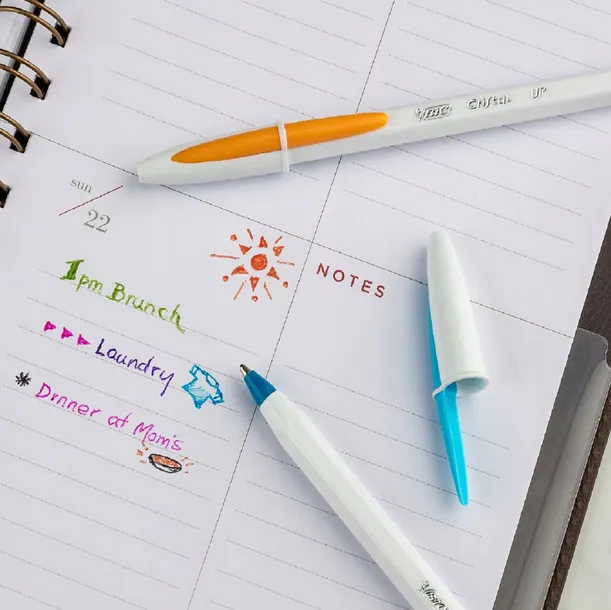 BIC Cristal UP
sun
22
NOTES
1pm Brunch
Laundry
Dinner at Mom's